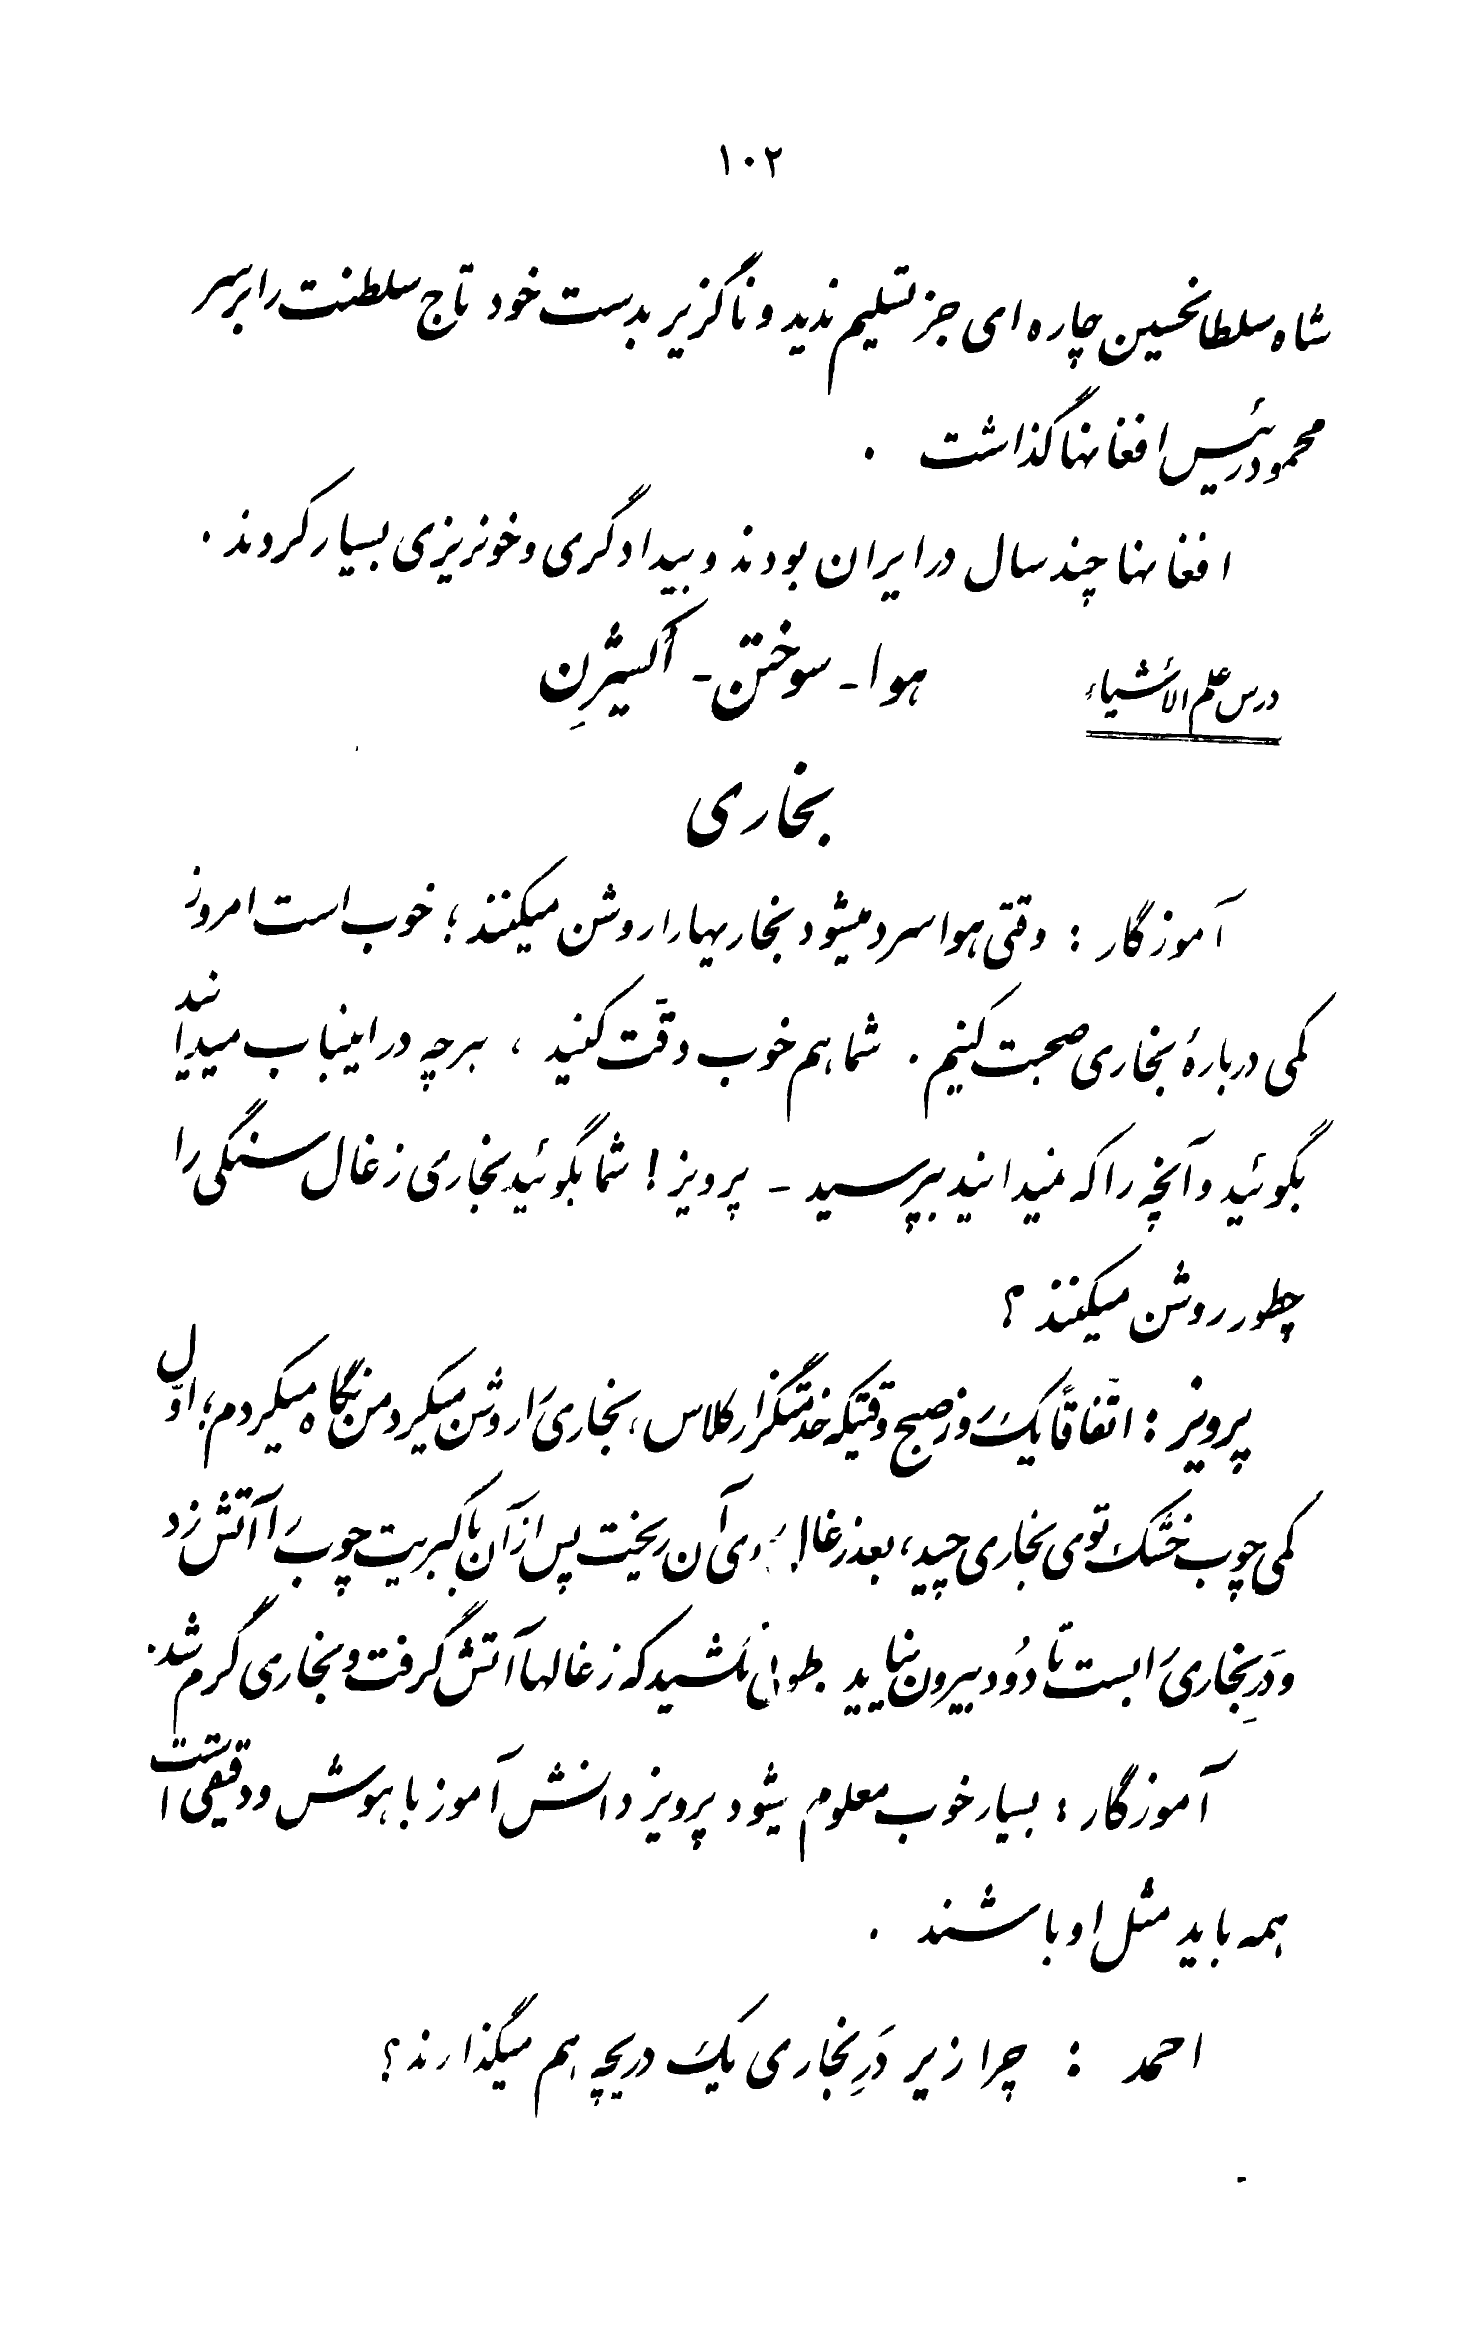 ۱۰۲
شاه سلطانحسین چاره ای جز تسلیم ندید و ناگزیر بدست خود تاج سلطنت را بر سر
محمود رئیس افغانها گذاشت .
افغانها چند سال در ایران بودند و بیدادگری و خونریزی بسیار کردند .
درس علم الأشیاء هوا - سوختن - اُکسیژِن
بخاری
آموزگار : وقتی هوا سرد میشود بخاریها را روشن میکنند ؛ خوب است امروز
کمی دربارهٔ بخاری صحبت کنیم . شما هم خوب دقّت کنید ، هرچه در اینباب میدانید
بگوئید و آنچه را که نمیدانید بپرسید - پرویز ! شما بگوئید بخاری زغال سنگی را
چطور روشن میکنند ؟
پرویز : اتّفاقاً یک روز صبح وقتیکه خدمتگزار کلاس ، بخاری را روشن میکرد من نگاه میکردم ؛ اوّل
کمی چوب خشک توی بخاری چید ، بعد زغال روی آن ریخت پس از آن با کبریت چوب را آتش زد
و دَرِ بخاری را بست تا دُود بیرون نیاید طولی نکشید که زغالها آتش گرفت و بخاری گرم شد .
آموزگار : بسیار خوب معلوم میشود پرویز دانش آموز باهوش و دقیقی است
همه باید مثل او باشند .
احمد : چرا زیر دَرِ بخاری یک دریچه هم میگذارند ؟